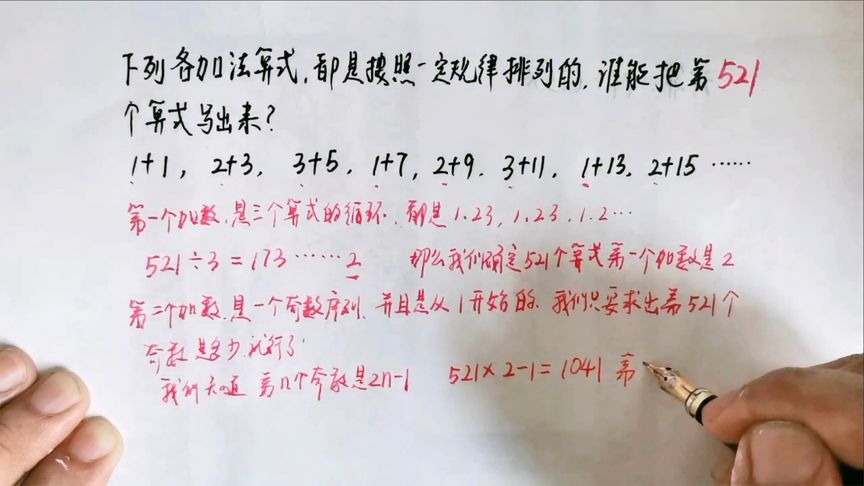 下列各加法算式，都是按照一定规律排列的，谁能把第521
个算式写出来？
1+1，2+3，3+5，1+7，2+9，3+11，1+13，2+15……
第一个加数，是三个算式的循环，都是1.2.3，1.2.3，1.2…
521÷3=173……2 那么我们确定521个算式第一个加数是2
第二个加数，是一个奇数序列，并且是从1开始的，我们只要求出第521个
奇数是多少就行了
我们知道 第n个奇数是2n-1 521×2-1=1041 第